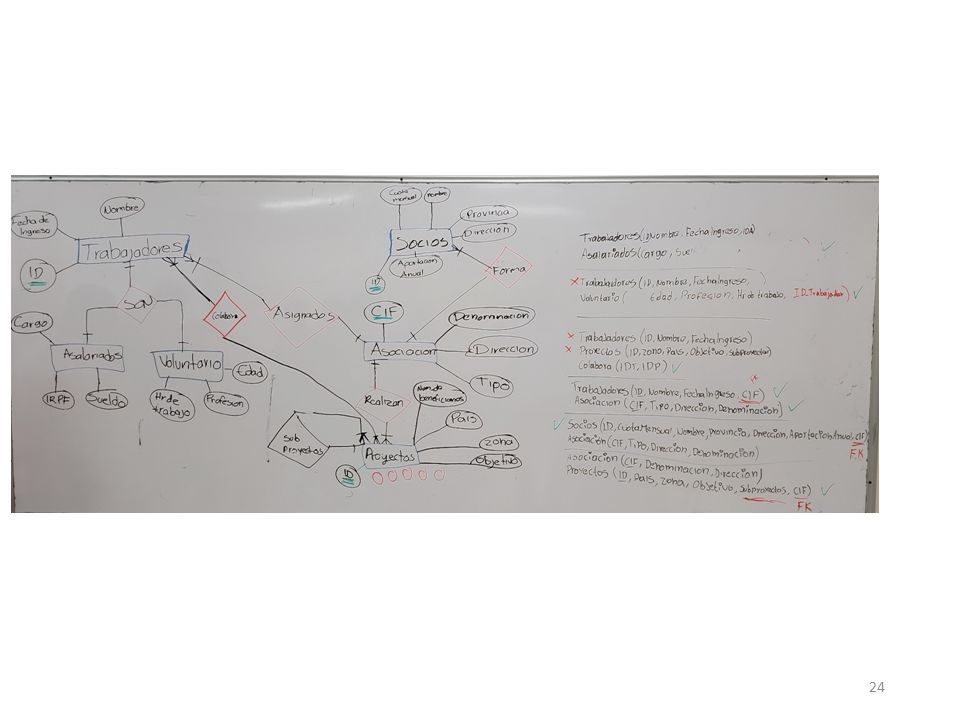 Fecha de
Ingreso
Nombre
Trabajadores
ID
Son
Cargo
Asalariados
IRPF
Sueldo
Voluntario
Edad
Hr de
trabajo
Profesion
Colabora
Asignados
Cuota
mensual
nombre
Provincia
Direccion
Socios
Aportacion
Anual
ID
Forma
CIF
Denominacion
Asociacion
Direccion
Tipo
Realizan
Num de
beneficiarios
Pais
zona
Objetivo
Sub
Proyectos
Proyectos
ID
Trabajadores (ID, Nombre, Fecha Ingreso, ID
Asalariados (Cargo, Suel
x Trabajadores (ID, Nombre, Fecha Ingreso, )
Voluntario ( Edad, Profesion, Hr de trabajo, ID.Trabajador) ✓
x Trabajadores (ID, Nombre, Fecha Ingreso)
x Proyectos (ID, zona, Pais, Objetivo, subproyectos)
Colabora (IDT, IDP) ✓
FK
Trabajadores (ID, Nombre, Fecha Ingreso, CIF) ✓
Asociacion (CIF, Tipo, Direccion, Denominacion) ✓
✓ Socios (ID, Cuota Mensual, Nombre, Provincia, Direccion, Aportacion Anual, CIF
FK
Asociacion (CIF, Tipo, Direccion, Denominacion)
Asociacion (CIF, Denominacion, Direccion)
Proyectos (ID, Pais, zona, Objetivo, subproyectos, CIF) ✓
FK
24